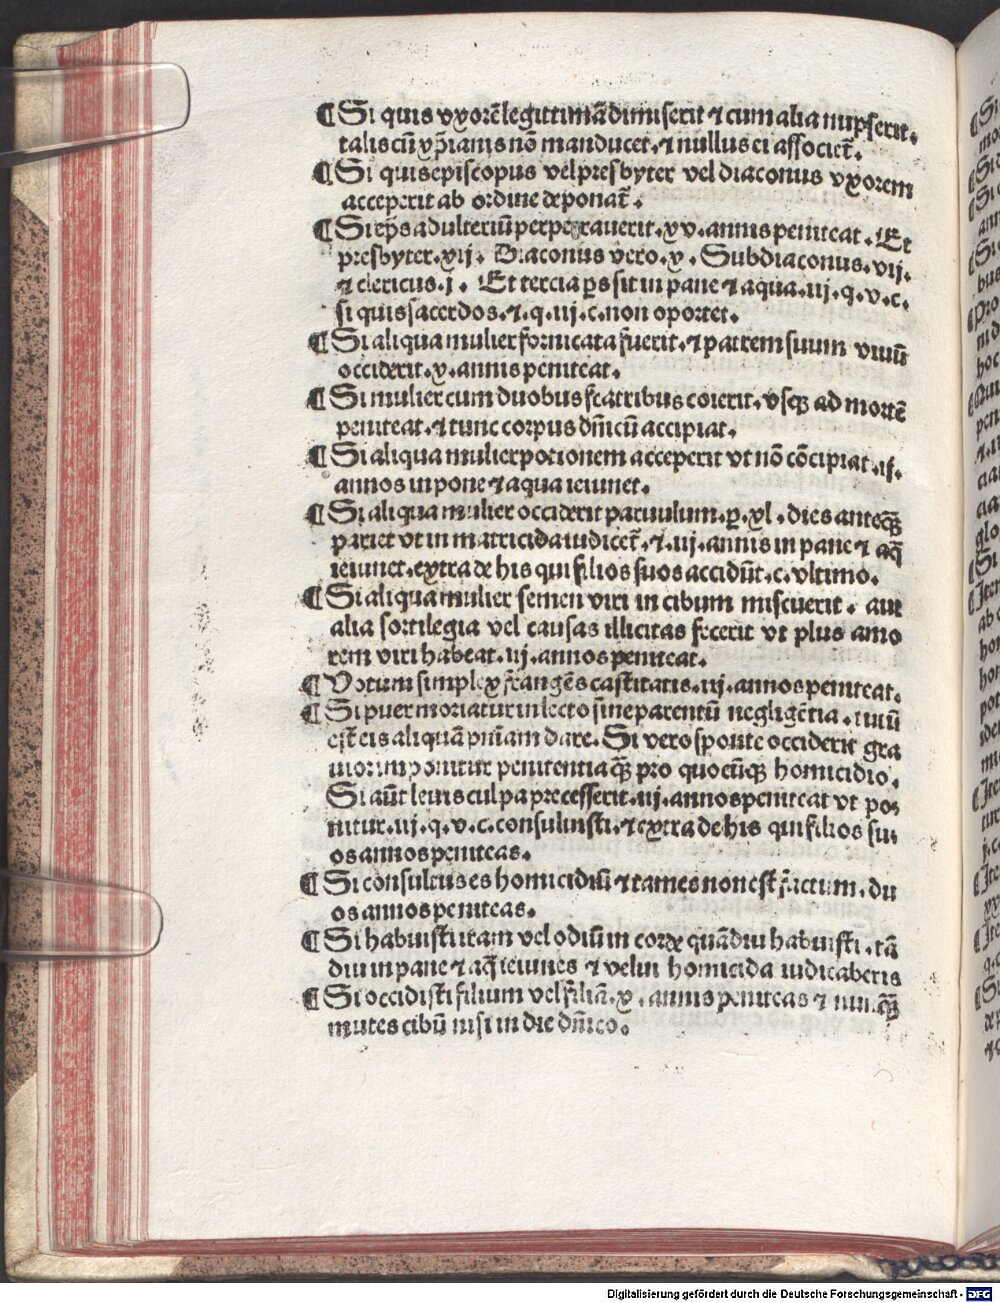 ¶ Si quis vxorē legittimā dimiserit ⁊ cum alia nupserit.
talis cū xp̄ianis nō manducet. ⁊ nullus ei associet̄.
¶ Si quis episcopus vel presbyter vel diaconus vxorem
acceperit ab ordine deponat̄.
¶ Si ep̄s adulteriū perpetrauerit. xv. annis peniteat. Et
presbyter. xij. Diaconus vero. x. Subdiaconus. vij.
⁊ clericus. j. Et tercia p̄s sit in pane ⁊ aqua. iij. q. v. c.
si quis sacerdos. ⁊. q. iij. c. non oportet.
¶ Si aliqua mulier fornicata fuerit. ⁊ patrem suum viuū
occiderit. x. annis peniteat.
¶ Si mulier cum duobus fratribus coierit. vsqꝫ ad mortē
peniteat. ⁊ tunc corpus dn̄icū accipiat.
¶ Si aliqua mulier potionem acceperit vt nō cōcipiat. ij.
annos in pone ⁊ aqua ieiunet.
¶ Si aliqua mulier occiderit paruulum. ꝑ. xl. dies anteqꝫ
pariet vt in matricida iudicet̄. ⁊. iij. annis in pane ⁊ aq̄
ieiunet. extra de his qui filios suos accidūt. c. vltimo.
¶ Si aliqua mulier semen viri in cibum miscuerit. aut
alia sortilegia vel causas illicitas fecerit vt plus amo
rem viri habeat. iij. annos peniteat.
¶ Votum simplex frangēs castitatis. iij. annos peniteat.
¶ Si puer moriatur in lecto sine parentū negligētia.
est eis aliquā pn̄iam dare. Si vero sponte occiderit gra
uior imponitur penitentia qꝫ pro quocūqꝫ homicidio.
Si aūt leuis culpa precesserit. iij. annos peniteat vt po⸗
nitur. iij. q. v. c. consuluisti. ⁊ extra de his qui filios su⸗
os annos peniteas.
¶ Si consultus es homicidiū ⁊ tames non est factum. du
os annos peniteas.
¶ Si habuisti iram vel odiū in corde quādiu habuisti. tā
diu in pane ⁊ aq̄ ieiunes ⁊ velut homicida iudicaberis
¶ Si occidisti filium vel filiā. x. annis peniteas ⁊ nunqꝫ
mutes cibū nisi in die dn̄ico.
Digitalisierung gefördert durch die Deutsche Forschungsgemeinschaft - DFG